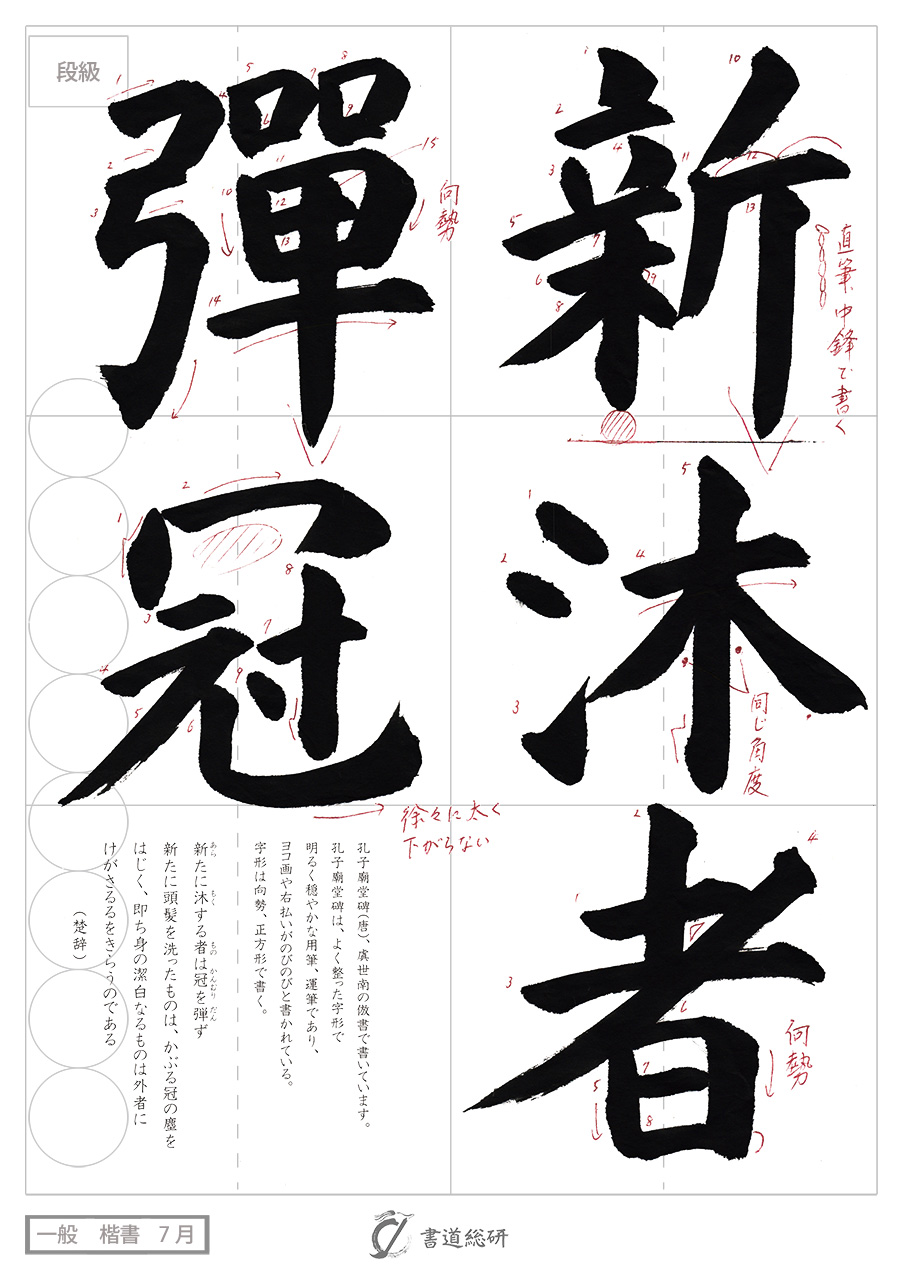 段級
新沐者
彈冠
直筆、中鋒で書く
向勢
同じ角度
徐々に太く
下がらない
向勢
孔子廟堂碑(唐)、虞世南の倣書で書いています。
孔子廟堂碑は、よく整った字形で
明るく穏やかな用筆、運筆であり、
ヨコ画や右払いがのびのびと書かれている。
字形は向勢、正方形で書く。
新たに沐する者は冠を弾ず
あら もく もの かんむり だん
新たに頭髪を洗ったものは、かぶる冠の塵を
はじく、即ち身の潔白なるものは外者に
けがさるるをきらうのである
(楚辞)
一般 楷書 7月
書道総研